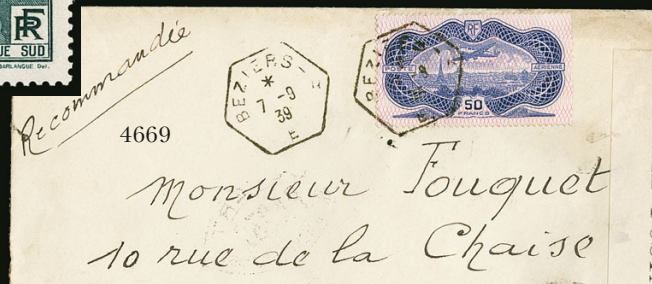 RF
UE SUD
BARLANGUE Del.
Recommandée
BEZIERS-R
*
7 -9
39
E
BEZIE
RF
POSTE AÉRIENNE
50
FRANCS
4669
Monsieur Fouquet
10 rue de la Chaise